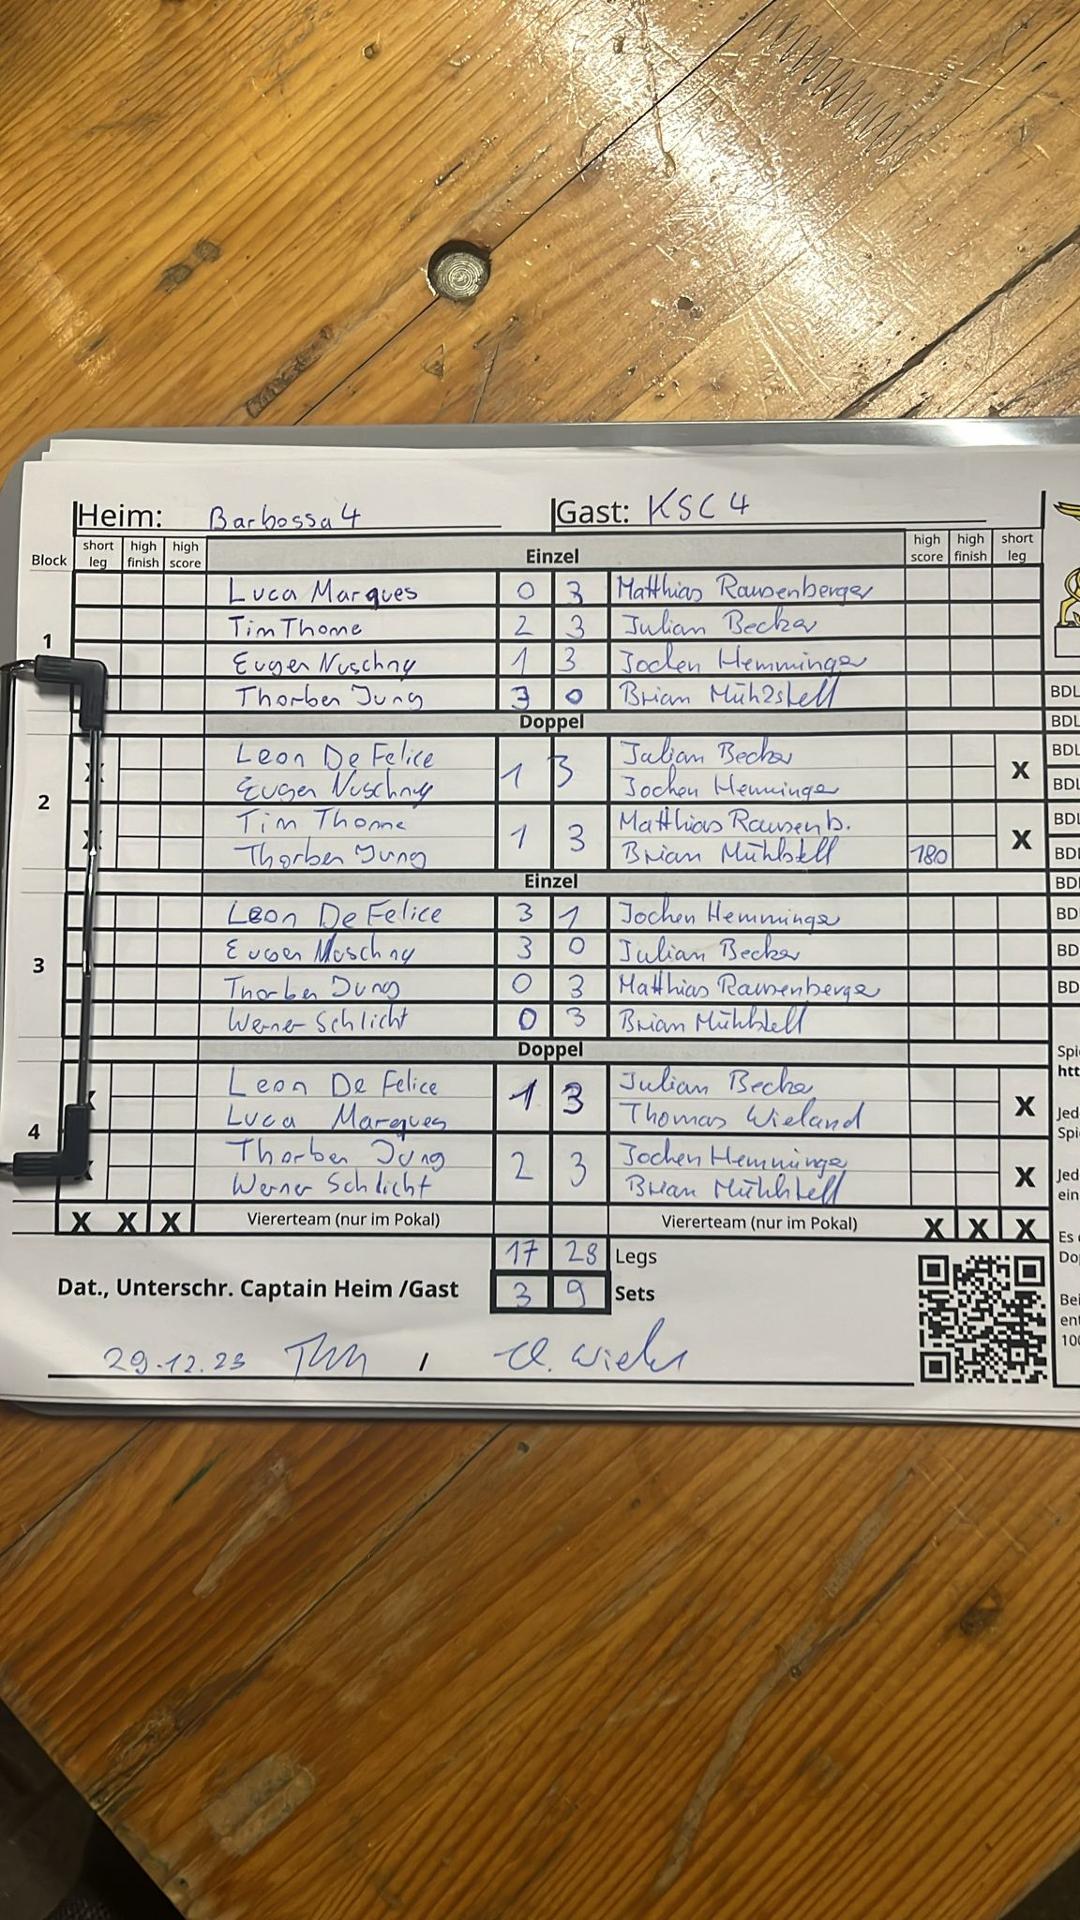 Heim: Barbossa 4 Gast: KSC 4
Block short leg high finish high score Einzel high score high finish short leg
1
Luca Marques 0 3 Matthias Rausenberger
Tim Thome 2 3 Julian Becker
Eugen Nuschny 1 3 Jochen Hemminger
Thorben Jung 3 0 Brian Mühlstell BDL
Doppel BDL
2
Leon De Felice 1 3 Julian Becker X BDL
Eugen Nuschny Jochen Hemminger BDL
Tim Thome 1 3 Matthias Rausenb. X BDL
Thorben Jung Brian Mühlstell 180 BD
Einzel BD
3
Leon De Felice 3 1 Jochen Hemminger BD
Eugen Nuschny 3 0 Julian Becker BD
Thorben Jung 0 3 Matthias Rausenberger BD
Werner Schlicht 0 3 Brian Mühlstell
Doppel Spi
htt
4
Leon De Felice 1 3 Julian Becker X Jed
Luca Marques Thomas Wieland Spi
Thorben Jung 2 3 Jochen Hemminger X Jed
Werner Schlicht Brian Mühlstell ein
X X X Viererteam (nur im Pokal) Viererteam (nur im Pokal) X X X Es
17 28 Legs Do
Dat., Unterschr. Captain Heim /Gast 3 9 Sets Bei
ent
100
29.12.23 /